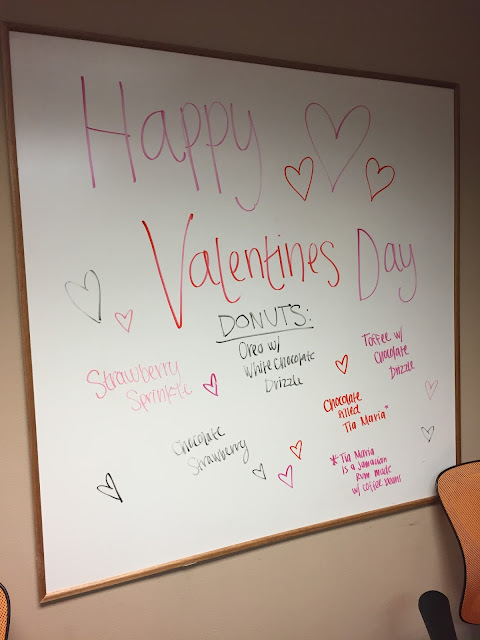 Happy
Valentines Day
DONUTS:
Strawberry
Sprinkle
Oreo w/
White Chocolate
Drizzle
Toffee w/
Chocolate
Drizzle
Chocolate
Strawberry
Chocolate
Filled
Tia Maria*
* Tia Maria
is a Jamaican
Rum made
w/ coffee beans